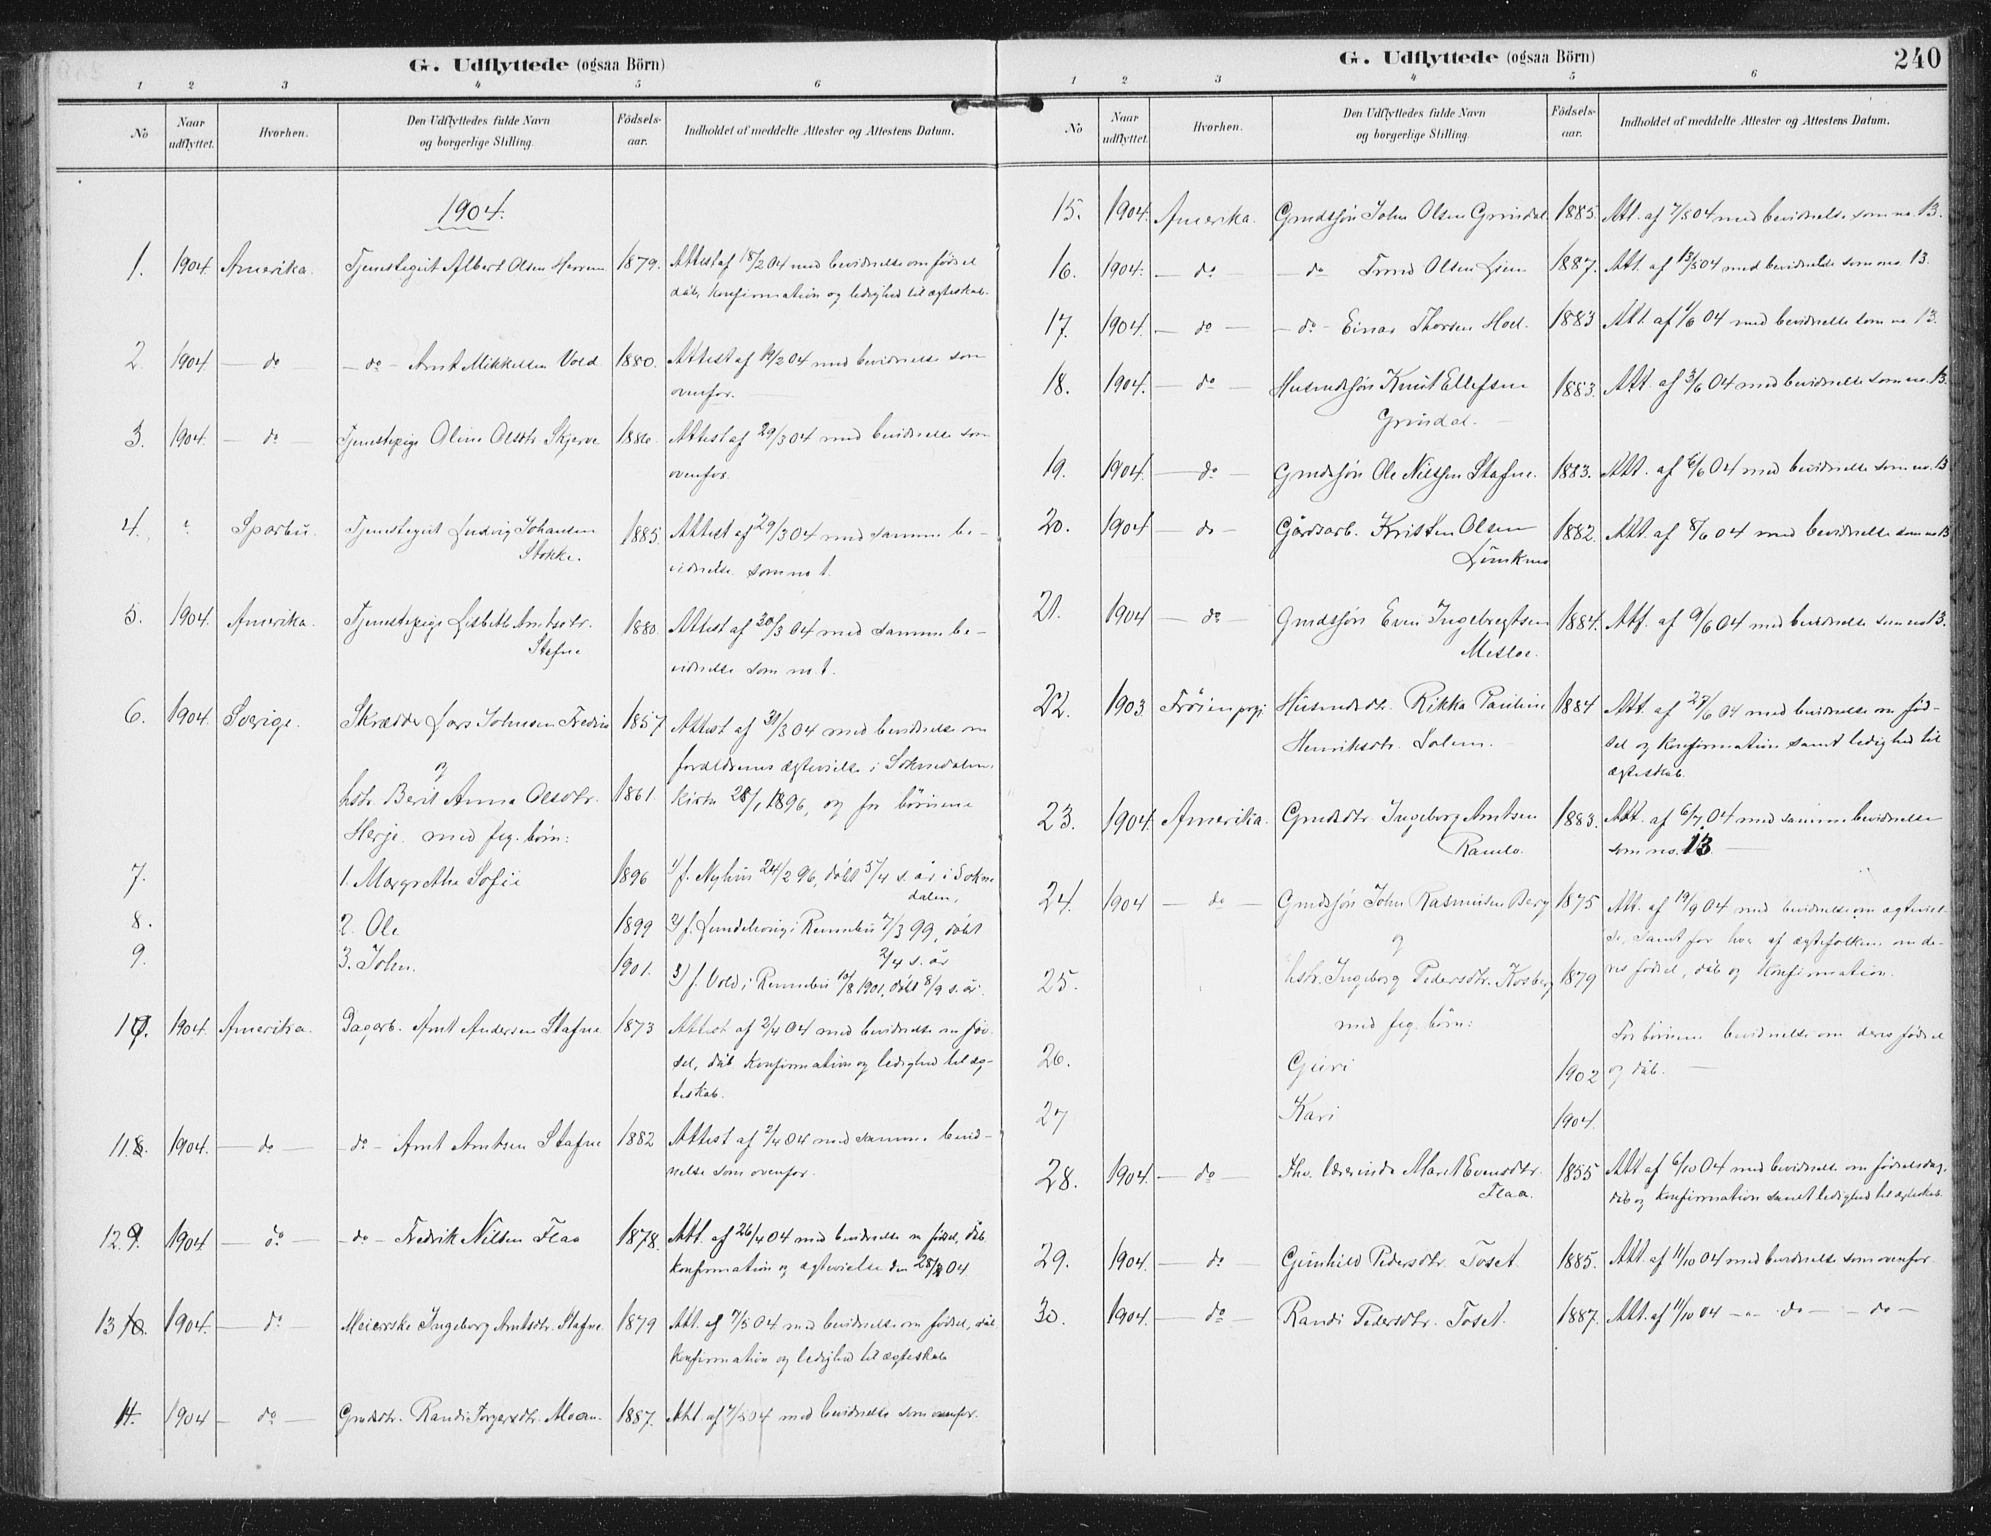 G. Udflyttede (ogsaa Börn)
1 2 3 4 5 6
No Naar udflyttet. Hvorhen. Den Udflyttedes fulde Navn og borgerlige Stilling. Födselsaar. Indholdet af meddelte Attester og Attestens Datum.
1904.
1. 1904 Amerika. Tjenestegut Albert Olsen Herrem 1879. Attest af 18/2 04 med bevidnelse om fødsel
dåb, konfirmation og ledighed til ægteskab.
2. 1904 — do — do — Arnt Mikkelsen Vold 1880. Attest af 19/2 04 med bevidnelse som
ovenfor.
3. 1904. — do — Tjenestepige Oline Olsdtr. Skjerve 1886. Attest af 29/3 04 med bevidnelse som
ovenfor.
4. " Sparbu. Tjenestegut Ludvig Johansen 1885. Attest af 29/3 04 med samme be-
Stokke. vidnelse som no 1.
5. 1904. Amerika. Tjenestepige Lisbeth Arntsdtr. 1880. Attest af 30/3 04 med samme be-
Stafne vidnelse som no 1.
6. 1904. Sverige. Skrædder Lars Johnsen 1857 Attest af 31/3 04 med bevidnelse om
og forældrenes ægtevielse i Soknedalen
hstr. Berit Anna Olsdtr. 1861 kirke 28/1 1896, og for börnene
Herje med flg. børn:
7. 1. Margrethe Sofie 1896 1) f. Nyhus 24/2 96, døbt 5/4 s. år i Sokne
dalen,
8. 2. Ole 1899 2) f. i Rennebu 7/3 99, døbt
2/4 s. år
9. 3. John. 1901. 3) f. Vold i Rennebu 10/8 1901, døbt 8/9 s. år.
10. 1904. Amerika. Dagarb. Arnt Andersen Stafne 1873 Attest af 2/4 04 med bevidnelse om fød-
sel, dåb konfirmation og ledighed til æg-
teskab.
11. 1904. — do — do — Arnt Arntsen Stafne 1882 Attest af 2/4 04 med samme bevid-
nelse som ovenfor.
12. 1904 — do — do — Fredrik Nilsen Flaa 1878. Att. af 26/4 04 med bevidnelse om fødsel, dåb
konfirmation og ægtevielse den 04.
13. 1904. — do — Meierske Ingeborg Arntsdtr. Stafne 1879 Att. af 7/5 04 med bevidnelse om fødsel, dåb
konfirmation og ledighed til ægteskab
14. 1904 — do — Gmdsdtr. Randi Moan. 1887. Att. af 7/5 04 med bevidnelse som ovenfor.
G. Udflyttede (ogsaa Börn) 240
1 2 3 4 5 6
No Naar udflyttet. Hvorhen. Den Udflyttedes fulde Navn og borgerlige Stilling. Födselsaar. Indholdet af meddelte Attester og Attestens Datum.
15. 1904. Amerika. Gmdssøn John Olsen Grindal 1885. Att. af 7/5 04 med bevidnelse som no. 13.
16. 1904. — do — do Trond Olsen Lien 1887. Att. af 13/5 04 med bevidnelse som no. 13.
17. 1904. — do — do — Einar Thorsen Hoel. 1883 Att. af 1/6 04 med bevidnelse som no 13.
18. 1904. — do — Husmdssøn Knut Ellefsen 1883. Att. af 3/6 04 med bevidnelse som no. 13.
Grindal.
19. 1904. — do — Gmdssøn Ole Nilssen Stafne. 1883. Att. af 6/6 04 med bevidnelse som no. 13
20. 1904 — do Gårdsarb. Kristen Olsen 1882. Att. af 8/6 04 med bevidnelse som no 13
21. 1904 — do — Gmdssøn Even Ingebregtsen 1884. Att. af 9/6 04 med bevidnelse som no 13.
22. 1903 Husmdsdtr. Rikka Pauline 1884 Att. af 27/6 04 med bevidnelse om fød-
Henriksdtr. Solem. sel og konfirmation samt ledighed til
ægteskab.
23. 1904. Amerika. Gmdsdtr. Ingeborg Arntsen 1883. Att. af 6/7 04 med samme bevidnelse
som no. 13 —
24. 1904 — do — Gmdssøn John Rasmussen Berg 1875 Att. af 19/9 04 med bevidnelse om ægteviel-
og se, samt for hver af ægtefolkene om de-
25. hstr. Ingeborg Pedersdtr. Kosberg 1879 res fødsel, dåb og konfirmation.
med flg. børn: For børnene bevidnelse om deres fødsel
26. Guri 1902 og dåb. —
27 Kari 1904.
28. 1904. — do — Fhv. lærerinde Marit Evensdtr. 1855 Att. af 6/10 04 med bevidnelse om fødselsdag,
Flaa. dåb og konfirmation samt ledighed til ægteskab.
29. 1904. — do — Gunhild Pedersdtr. Toset. 1885. Att. af 11/10 04 med bevidnelse som ovenfor.
30. 1904. — do — Randi Pedersdtr. Toset. 1887. Att. af 11/10 04 — do — do —